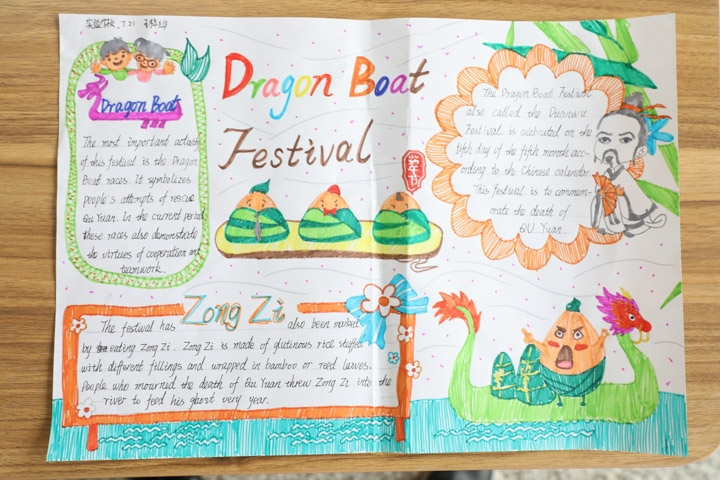 7.21
Dragon Boat
Festival
Dragon Boat
The most important activity
of this festival is the Dragon
Boat races. It symbolizes
people's attempts of rescue
Qu Yuan. In the current period
these races also demonstrate
the virtues of cooperation and
teamwork.
The Dragon Boat Festival
also called the Duanwu
Festival, is celebrated on the
fifth day of the fifth month acc-
ording to the Chinese calendar.
This festival is to commem-
orate the death of
QU Yuan.
端午节
Zong Zi
The festival has also been marked
by eating Zong Zi. Zong Zi is made of glutinous rice stuffed
with different fillings and wrapped in bamboo or reed leaves.
People who mourned the death of Qu Yuan threw Zong Zi into the
river to feed his ghost very year.